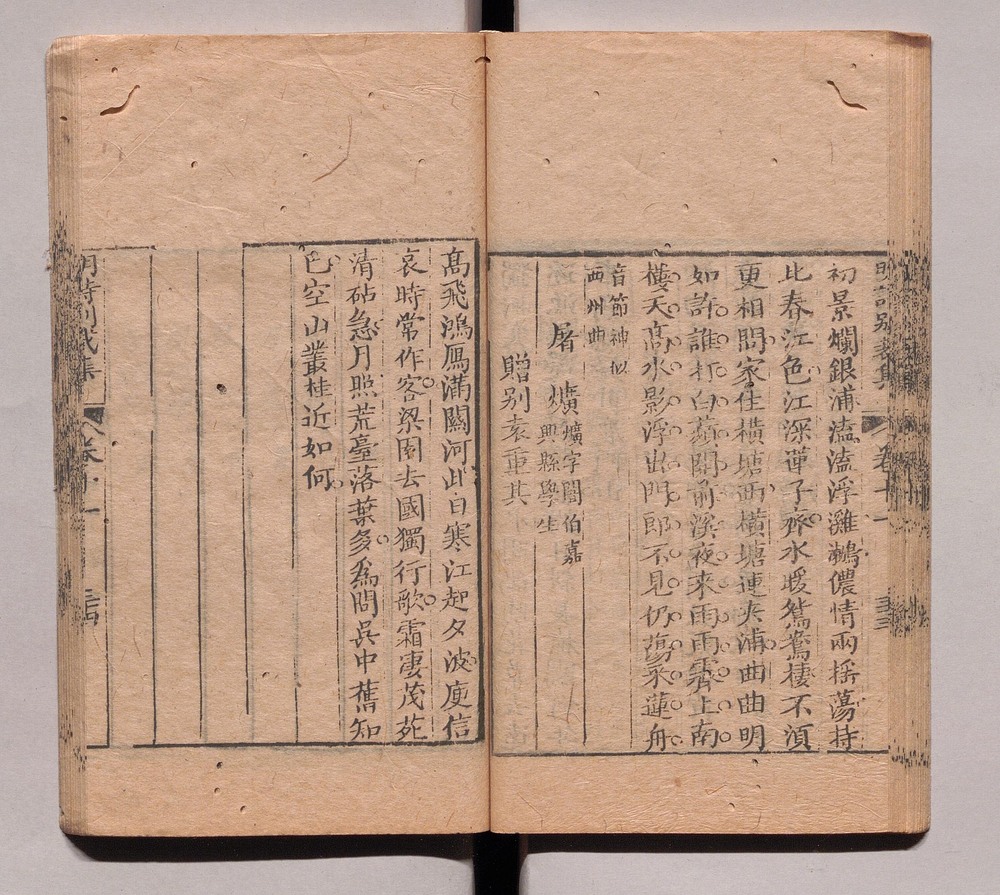 明詩別裁集 卷十一 三三
初景爛銀浦溘溘浮㶉鶒儂情兩搖蕩持
比春江色江深蓮子齊水暖鴛鴦棲不須
更相問家住橫塘西橫塘連夾浦曲曲明
如許誰打白蘋開前溪夜來雨雨霽上南
樓天高水影浮出門郎不見仍蕩采蓮舟
音節神似
西州曲
屠爌爌字闇伯嘉
興縣學生
贈別袁重其
高飛鴻鴈滿關河此日寒江起夕波庾信
哀時常作客梁園去國獨行歌霜凄茂苑
清砧急月照荒臺落葉多為問吳中舊知
己空山叢桂近如何
明詩別裁集 卷十一 三四